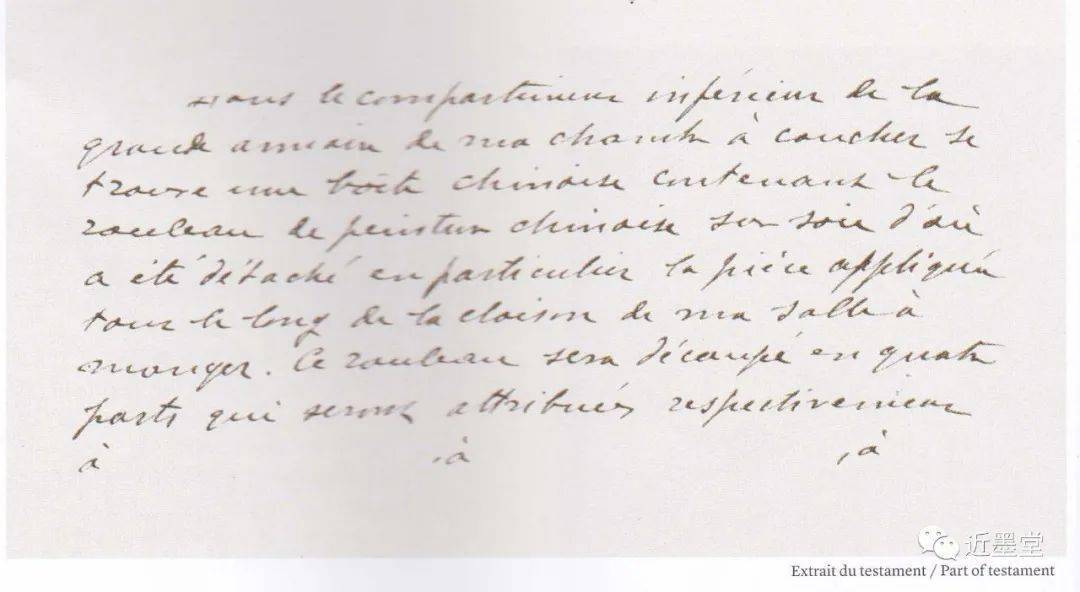 Dans le compartiment inférieur de la
grande armoire de ma chambre à coucher se
trouve une boîte chinoise contenant le
rouleau de peinture chinoise sur soie d'où
a été détaché en particulier la pièce appliquée
tout le long de la cloison de ma salle à
manger. Ce rouleau sera découpé en quatre
parts qui seront attribuées respectivement
à , à , à
近墨堂
Extrait du testament / Part of testament